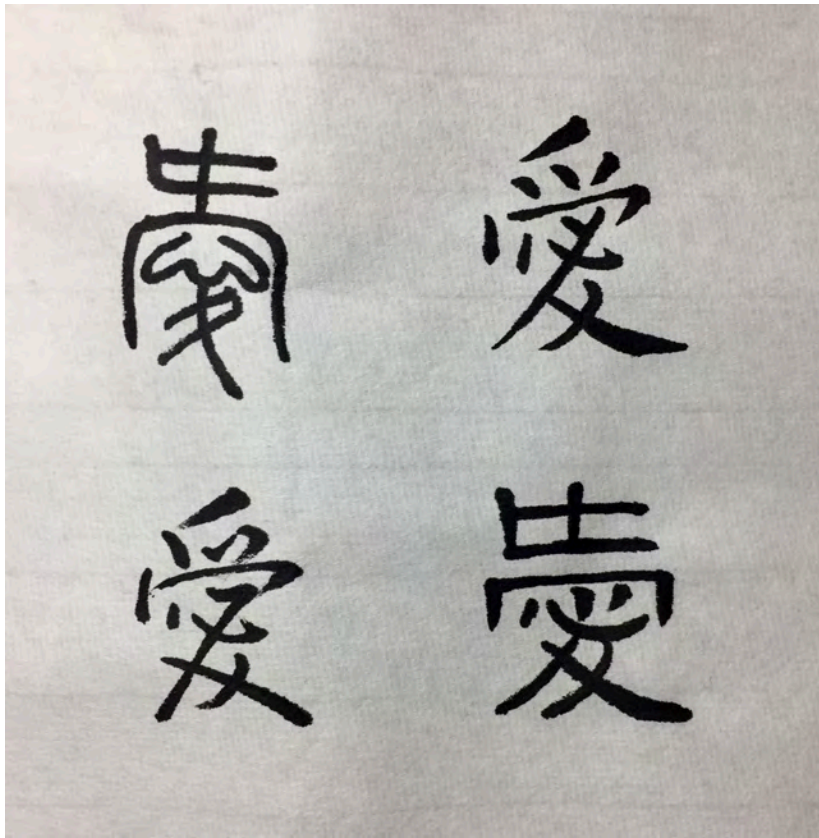 愛愛
愛愛